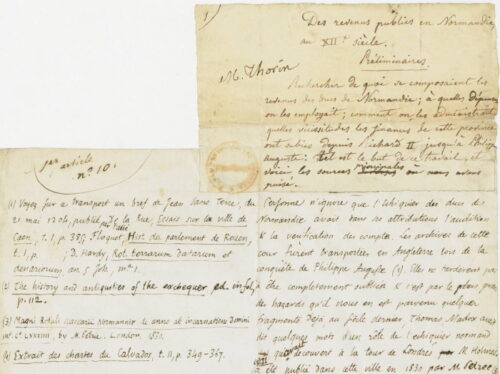 1
Des revenus publics en Normandie,
au XIIe siècle.
Préliminaires
M. Thorin
Rechercher de quoi se composaient les
revenus des ducs de Normandie ; à quelles dépenses
on les employait ; comment on les administrait
quelles vicissitudes les finances de cette province
ont subies depuis Richard II jusqu'à Philippe
Auguste : tel est le but de ce travail, et
voici les sources principales où nous avons
puisé.
per article
n° 10.
(1) Voyez sur a transport un bref de Jean sans terre, du
21 mai 1204, publié par De la Rue, Essais sur la ville de
Caen, t. 1, p. 375 Floquet, Hist. du parlement de Rouen,
t. 1, p. ; D. Hardy, Rot. terrarum datarum et
denariorum, an 5 Joh, m. 1.
(2) The history and antiquities of the exchequer ed. in fol.
p. 112.
(3) Magni Rotuli scaccarii Normanniæ de anno ab incarnatione Domini
by M. Petrie. London, 1830.
(4) Extrait des chartes du Calvados, t. II, p. 349-367.
Personne n'ignore que l'échiquier des ducs de
Normandie avait dans ses attributions l'audition
& la vérification des comptes. Les archives de cette
cour furent transportées en Angleterre lors de la
conquête de Philippe Auguste (1). Elles ne
être complètement oubliées & c'est par le plus
de hazards qu'il nous en est parvenu quelques
fragments. Déjà au siècle dernier, Thomas Madox avait
dit quelques mots d'un rôle de l'échiquier normand
découvert à la tour de Londres
a été publié dans cette ville en 1830 par M. Petree